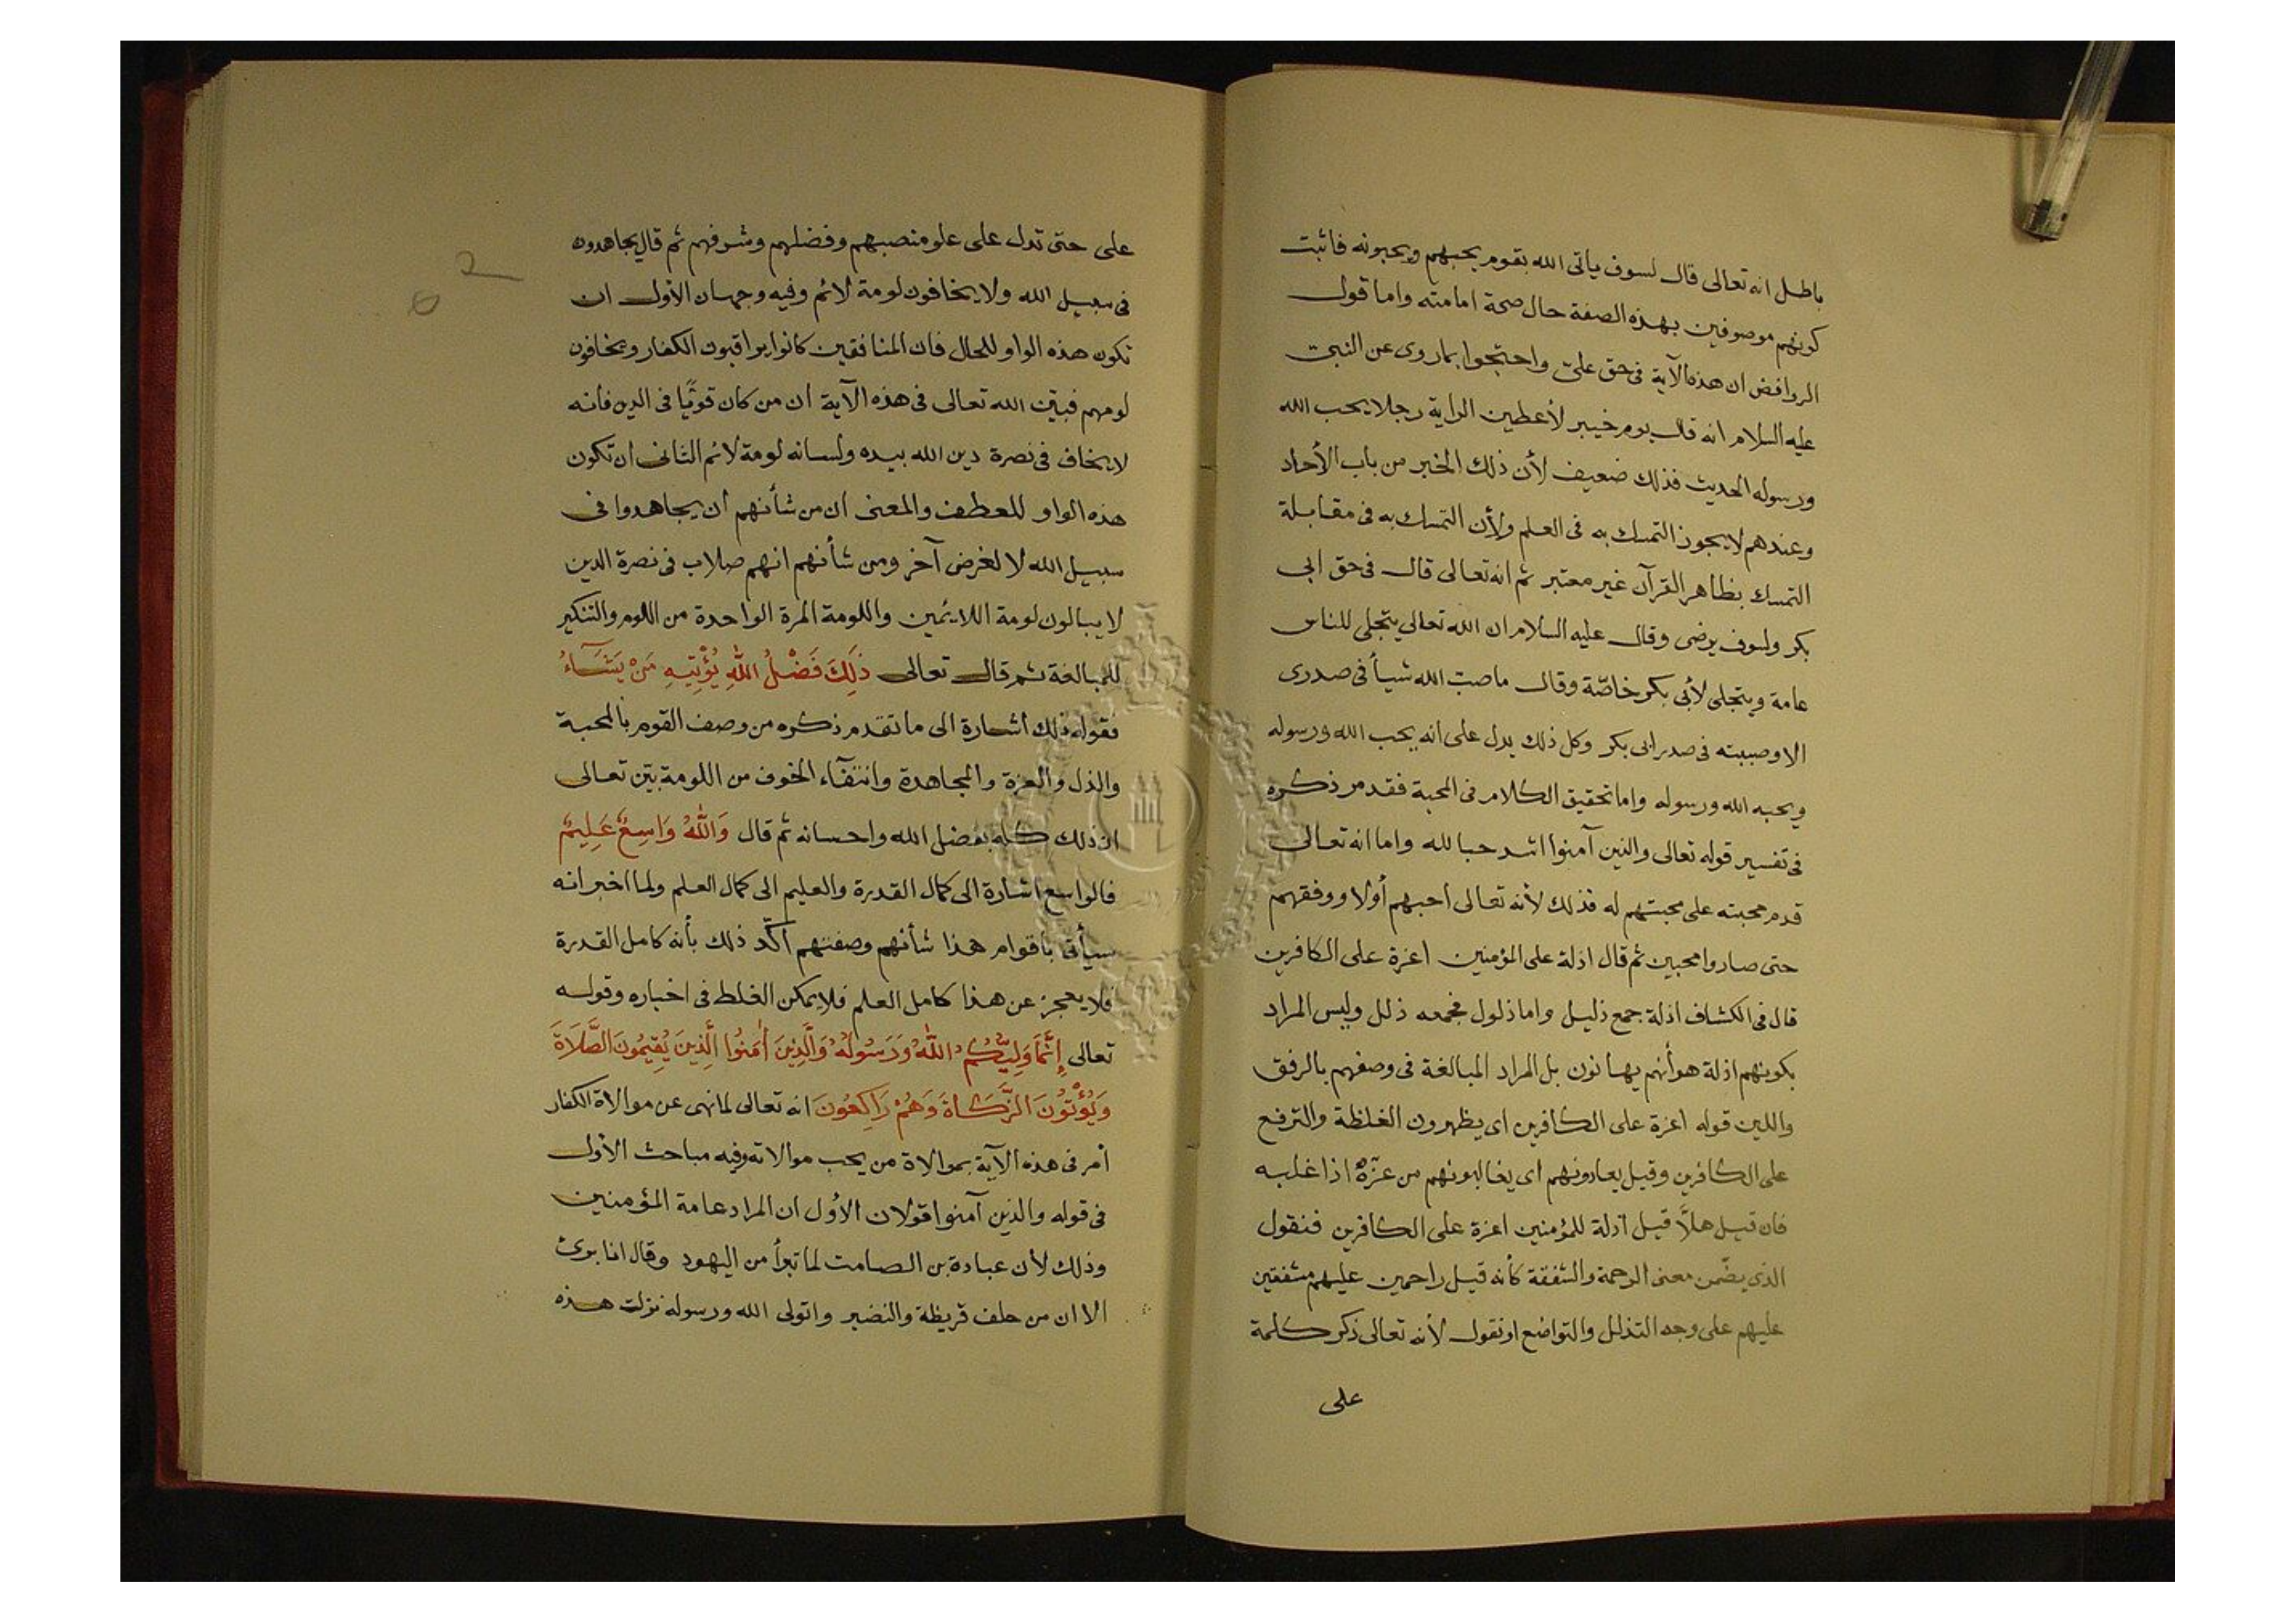 باطل انه تعالى قال لسوف يأتى الله بقوم يحبهم ويحبونه فاثبت
كونهم موصوفين بهذه الصفة حال صحة امامته واما قول
الروافض ان هذه الآية فى حق علىّ واحتجوا بما روى عن النبىّ
عليه السلام انه قال يوم خيبر لأعطين الراية رجلا يحب الله
ورسوله الحديث فذلك ضعيف لأن ذلك الخبر من باب الأحاد
وعندهم لا يجوز التمسك به فى العلم ولأن التمسك به فى مقابلة
التمسك بظاهر القرآن غير معتبر ثم انه تعالى قال فى حق ابى
بكر ولسوف يرضى وقال عليه السلام ان الله تعالى يتجلى للناس
عامة ويتجلى لأبى بكر خاصّة وقال ما صبّ الله شيأ فى صدرى
الا وصببته فى صدر ابى بكر وكل ذلك يدل على انه يحب الله ورسوله
ويحبه الله ورسوله واما تحقيق الكلام فى المحبة فقد مر ذكره
فى تفسير قوله تعالى والذين آمنوا اشد حبا لله واما انه تعالى
قدم محبته على محبتهم له فذلك لأنه تعالى احبهم أولا ووفقهم
حتى صاروا محبين ثم قال اذلة على المؤمنين اعزة على الكافرين
قال فى الكشاف اذلة جمع ذليل واما ذلول فجمعه ذلل وليس المراد
بكونهم اذلة هو أنهم يهانون بل المراد المبالغة فى وصفهم بالرفق
واللين قوله اعزة على الكافرين اى يظهرون الغلظة والترفع
على الكافرين وقيل يعادونهم اى يغالبونهم من عزّهُ اذا غلبه
فان قيل هلاَّ قيل اذلة للمؤمنين اعزة على الكافرين فنقول
الذى يضّمن معنى الرحمة والشفقة كأنه قيل راحمين عليهم مشفقين
عليهم على وجه التذلل والتواضع او نقول لأنه تعالى ذكر كلمة
على
على حتى تدل على علو منصبهم وفضلهم وشرفهم ثم قال يجاهدون
فى سبيل الله ولا يخافون لومة لائم وفيه وجهان الأول ان
تكون هذه الواو للحال فان المنافقين كانوا يراقبون الكفار ويخافون
لومهم فبيّن الله تعالى فى هذه الآية ان من كان قويًّا فى الدين فأنه
لا يخاف فى نصرة دين الله بيده ولسانه لومة لائم الثانى ان تكون
هذه الواو للعطف والمعنى ان من شأنهم ان يجاهدوا فى
سبيل الله لا لغرض آخر ومن شأنهم انهم صلاب فى نصرة الدين
لا يبالون لومة اللايمين واللومة المرة الواحدة من اللوم والتنكير
للمبالغة ثم قال تعالى ذٰلِكَ فَضْلُ اللّٰهِ يُؤْتِيهِ مَنْ يَشَآءُ
فقوله ذلك اشارة الى ما تقدم ذكره من وصف القوم بالمحبة
والذل والعزة والمجاهدة وانتفآء الخوف من اللومة بيّن تعالى
ان ذلك كله بفضل الله واحسانه ثم قال وَاللّٰهُ وَاسِعٌ عَلِيمٌ
فالواسع اشارة الى كمال القدرة والعليم الى كمال العلم ولما اخبر انه
سيأتى باقوام هذا شأنهم وصفتهم اكّد ذلك بأنه كامل القدرة
فلا يعجز عن هذا كامل العلم فلا يمكن الغلط فى اخباره وقوله
تعالى إِنَّمَا وَلِيُّكُمُ اللّٰهُ وَرَسُولُهُ وَالَّذِينَ اٰمَنُوا الَّذِينَ يُقِيمُونَ الصَّلَاةَ
وَيُؤْتُونَ الزَّكَاةَ وَهُمْ رَاكِعُونَ انه تعالى لما نهى عن موالاة الكفار
أمر فى هذه الآية بموالاة من يحب موالاته وفيه مباحث الأول
فى قوله والذين آمنوا قولان الأول ان المراد عامة المؤمنين
وذلك لأن عبادة بن الصامت لما تبرأ من اليهود وقال انا برئ
الا ان من حلف قريظة والنضير واتولى الله ورسوله نزلت هذه